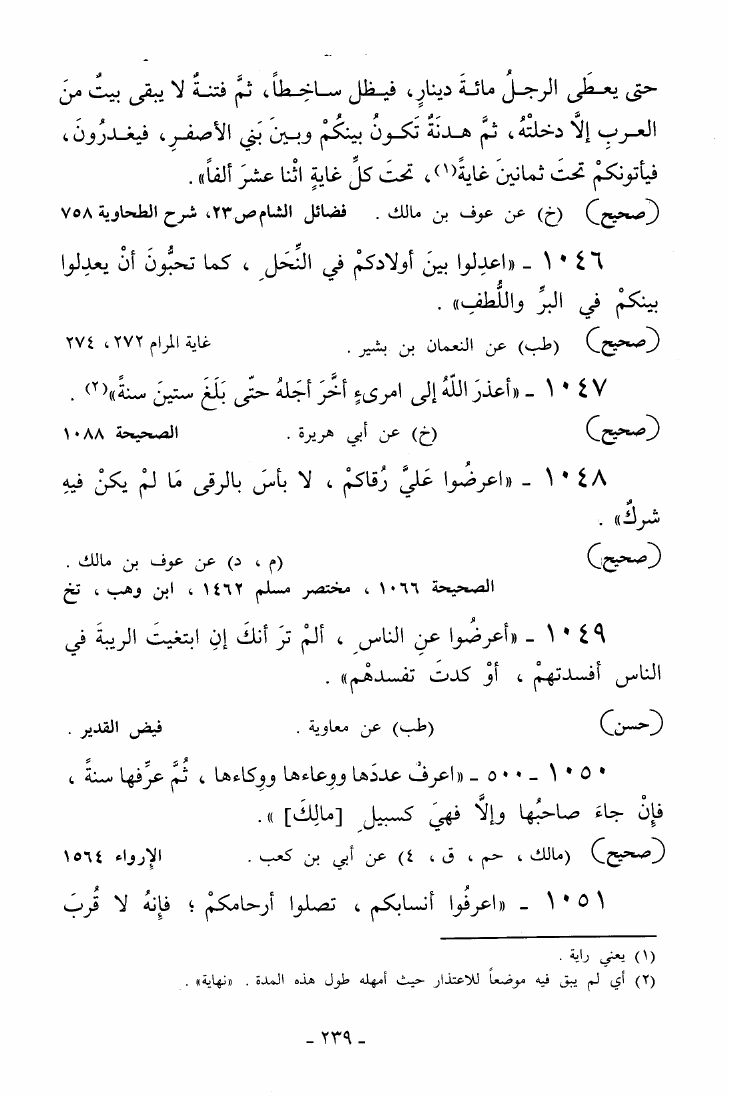 حتى يعطَى الرجلُ مائةَ دينارٍ، فيظل ساخِطاً، ثمَّ فتنةٌ لا يبقى بيتٌ منَ
العربِ إلَّا دخلتْهُ، ثمَّ هدنَةٌ تَكونُ بينكُمْ وبينَ بَني الأصفرِ، فيغدرُونَ،
فيأتونكمْ تحتَ ثمانينَ غايةً(١)، تحتَ كلِّ غايةٍ اثْنا عشرَ ألفاً».
(صحيح) (خ) عن عوف بن مالك . فضائل الشام ص ٢٣، شرح الطحاوية ٧٥٨
١٠٤٦ ـ «اعدِلوا بينَ أولادكمْ في النِّحَلِ ، كما تحبُّونَ أنْ يعدِلوا
بينكمْ في البرِّ واللُّطفِ» .
(صحيح) (طب) عن النعمان بن بشير . غاية المرام ٢٧٢ ، ٢٧٤
١٠٤٧ ـ «أعذرَ اللّهُ إلى امرىءٍ أخَّرَ أجَلهُ حتّى بَلَغَ ستينَ سنةً»(٢) .
(صحيح) (خ) عن أبي هريرة . الصحيحة ١٠٨٨
١٠٤٨ ـ «اعرضُوا عَليَّ رُقاكمْ ، لا بأسَ بالرقى مَا لمْ يكنْ فيهِ
شركٌ» .
(صحيح) (م ، د) عن عوف بن مالك .
الصحيحة ١٠٦٦ ، مختصر مسلم ١٤٦٢ ، ابن وهب ، تخ
١٠٤٩ ـ «أعرضُوا عنِ الناسِ ، ألمْ ترَ أنكَ إنِ ابتغيتَ الريبةَ في
الناس أفسدتهمْ ، أوْ كدتَ تفسدهْم» .
(حسن) (طب) عن معاوية . فيض القدير .
١٠٥٠ ـ ٥٠٠ ـ «اعرفْ عددَها ووعاءها ووكاءها ، ثُمَّ عرِّفها سنةً ،
فإنْ جاءَ صاحبُها وإلَّا فهيَ كسبيلِ [مالِكَ] ».
(صحيح) (مالك ، حم ، ق ، ٤) عن أبي بن كعب . الإرواء ١٥٦٤
١٠٥١ ـ «اعرفُوا أنسابكم ، تصلوا أرحامكمْ ؛ فإنهُ لا قُربَ
(١) يعني راية .
(٢) أي لم يبق فيه موضعاً للاعتذار حيث أمهله طول هذه المدة . «نهاية» .
ـ ٢٣٩ ـ